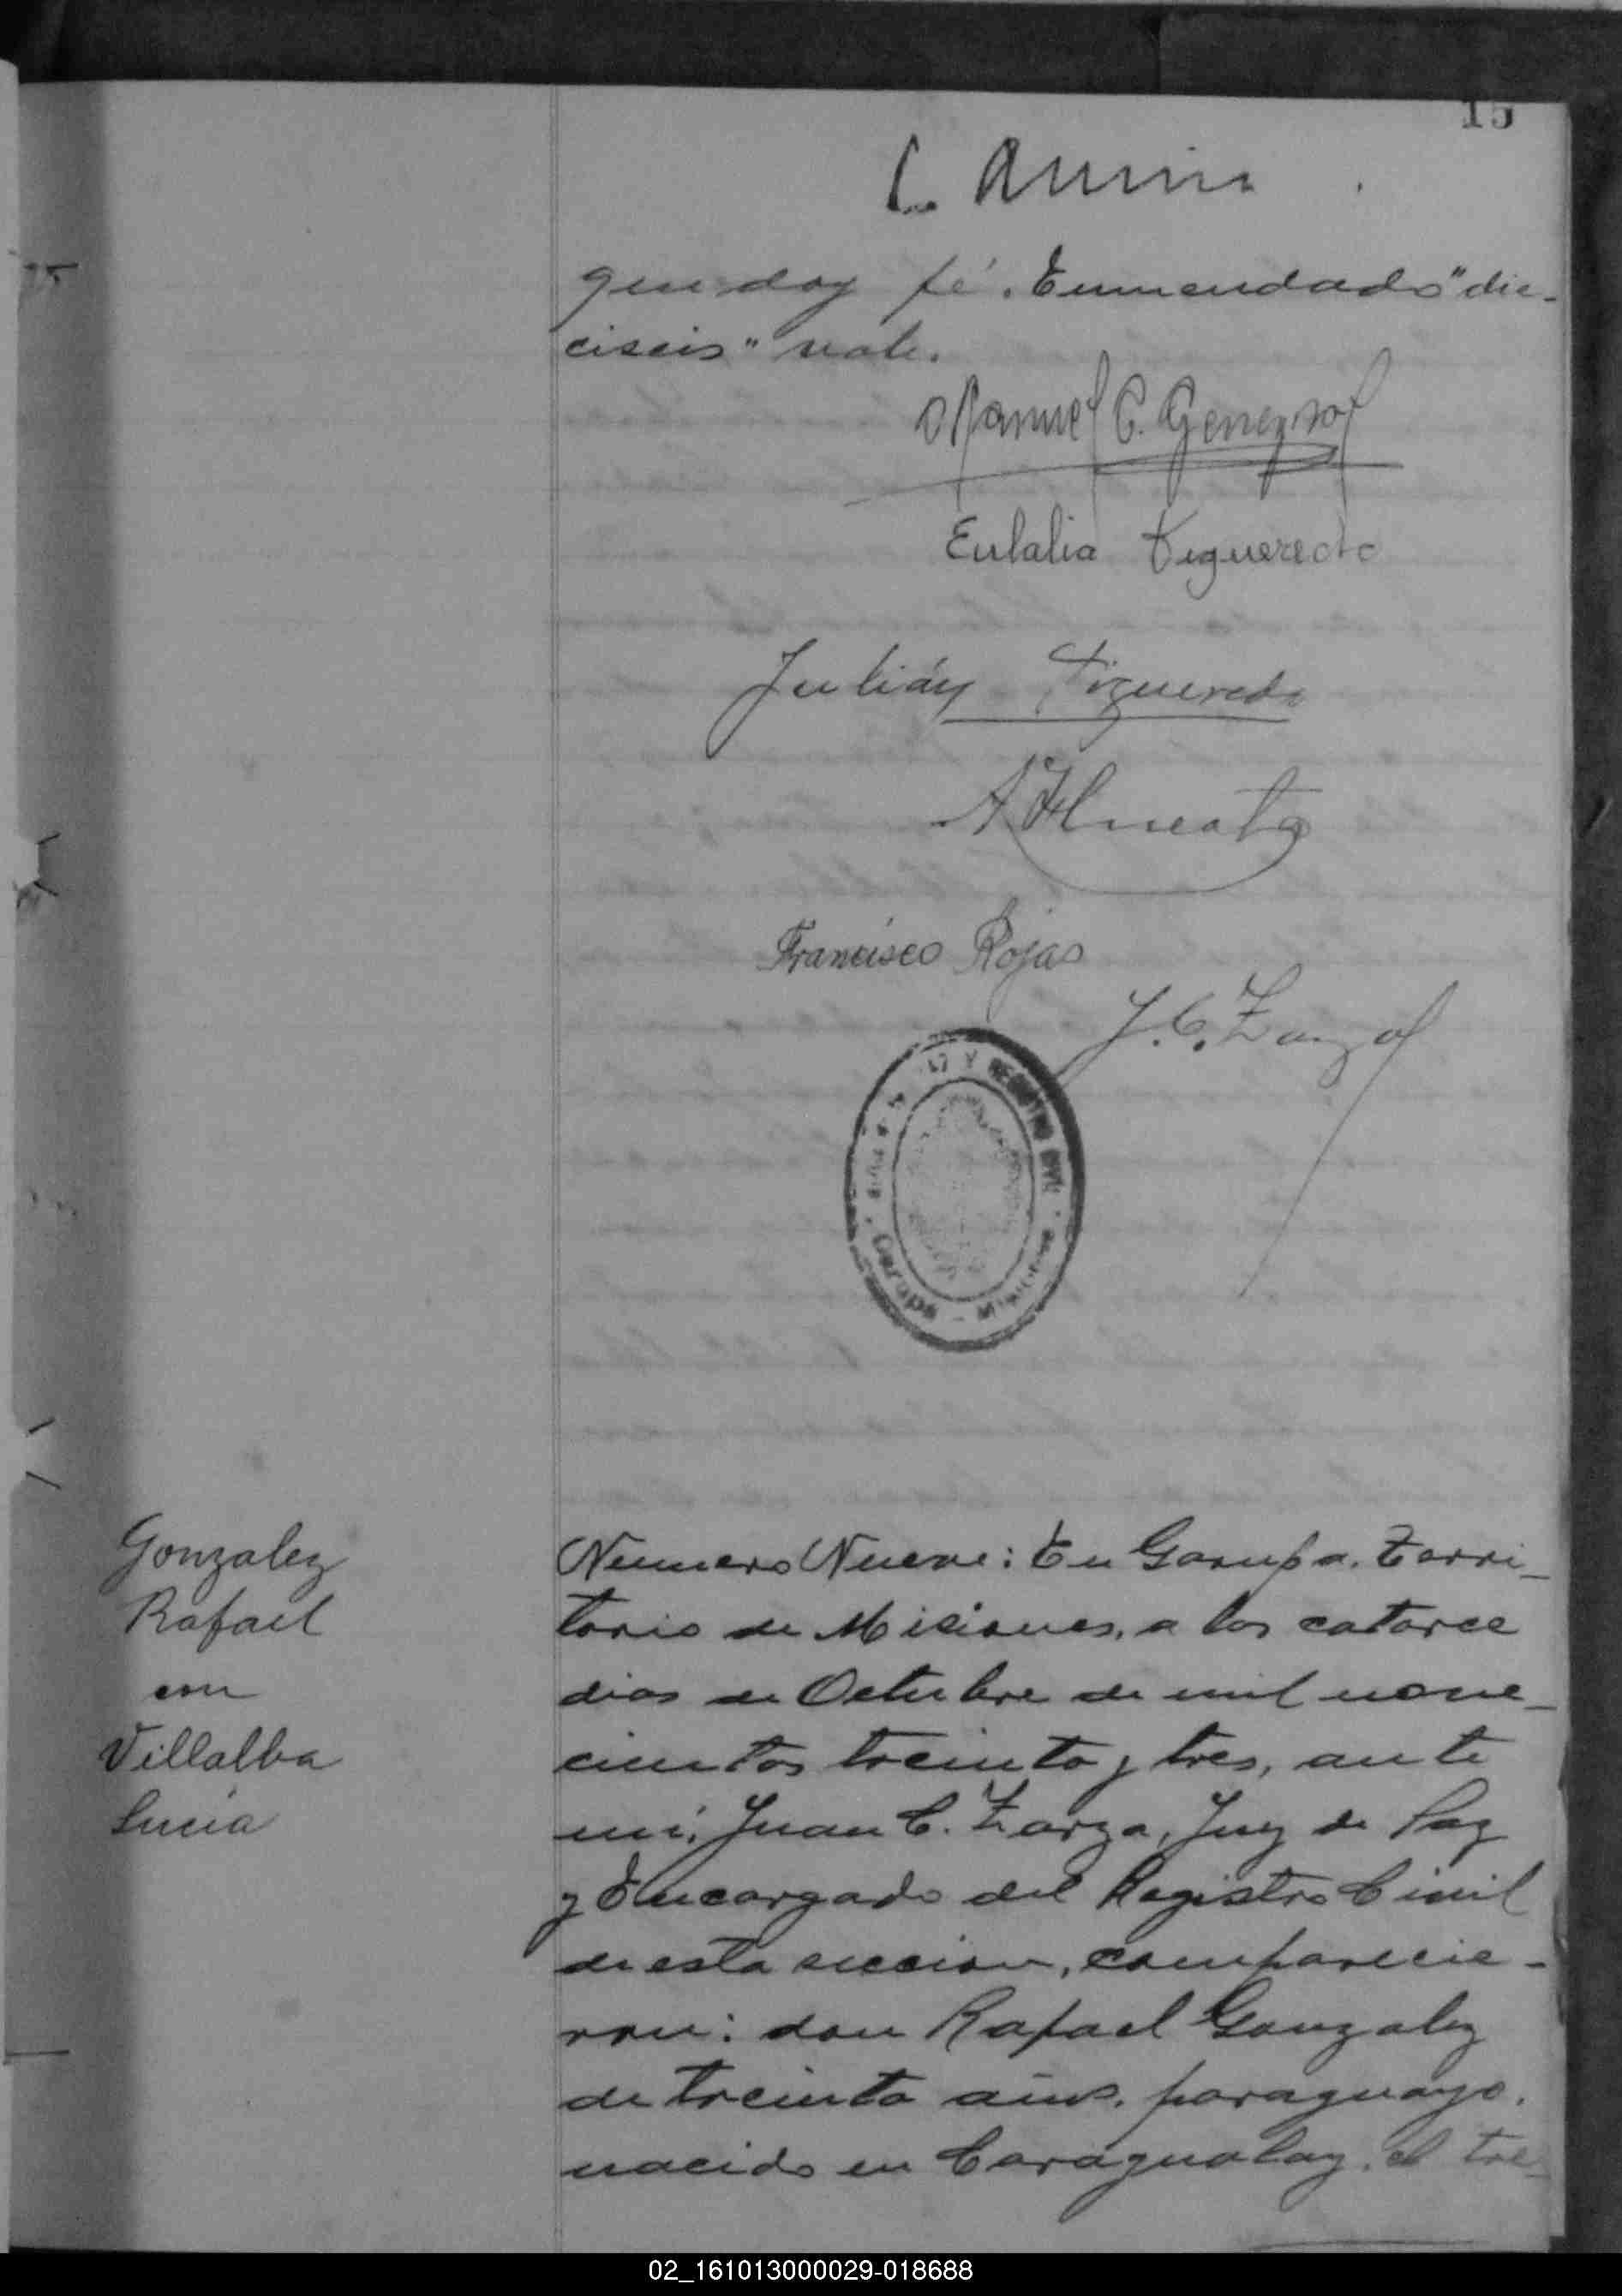 15
que doy fé. Enmendado "die-
ciseis" vale.
Manuel C.
Eulalia Figueredo
Julián Figueredo
Francisco Rojas
J. C. Zarza
Y REGISTRO CIVIL
Garupá - Misiones
Gonzalez
Rafael
con
Villalba
Lucia
Numero Nueve: En Garupa, Terri-
torio de Misiones, a los catorce
dias de Octubre de mil nove-
cientos treinta y tres, ante
mi, Juan C. Zarza, Juez de Paz
y Encargado del Registro Civil
de esta seccion, comparecie-
ron: don Rafael Gonzalez
de treinta años, paraguayo,
nacido en Caraguatay, el tre-
02_161013000029-018688